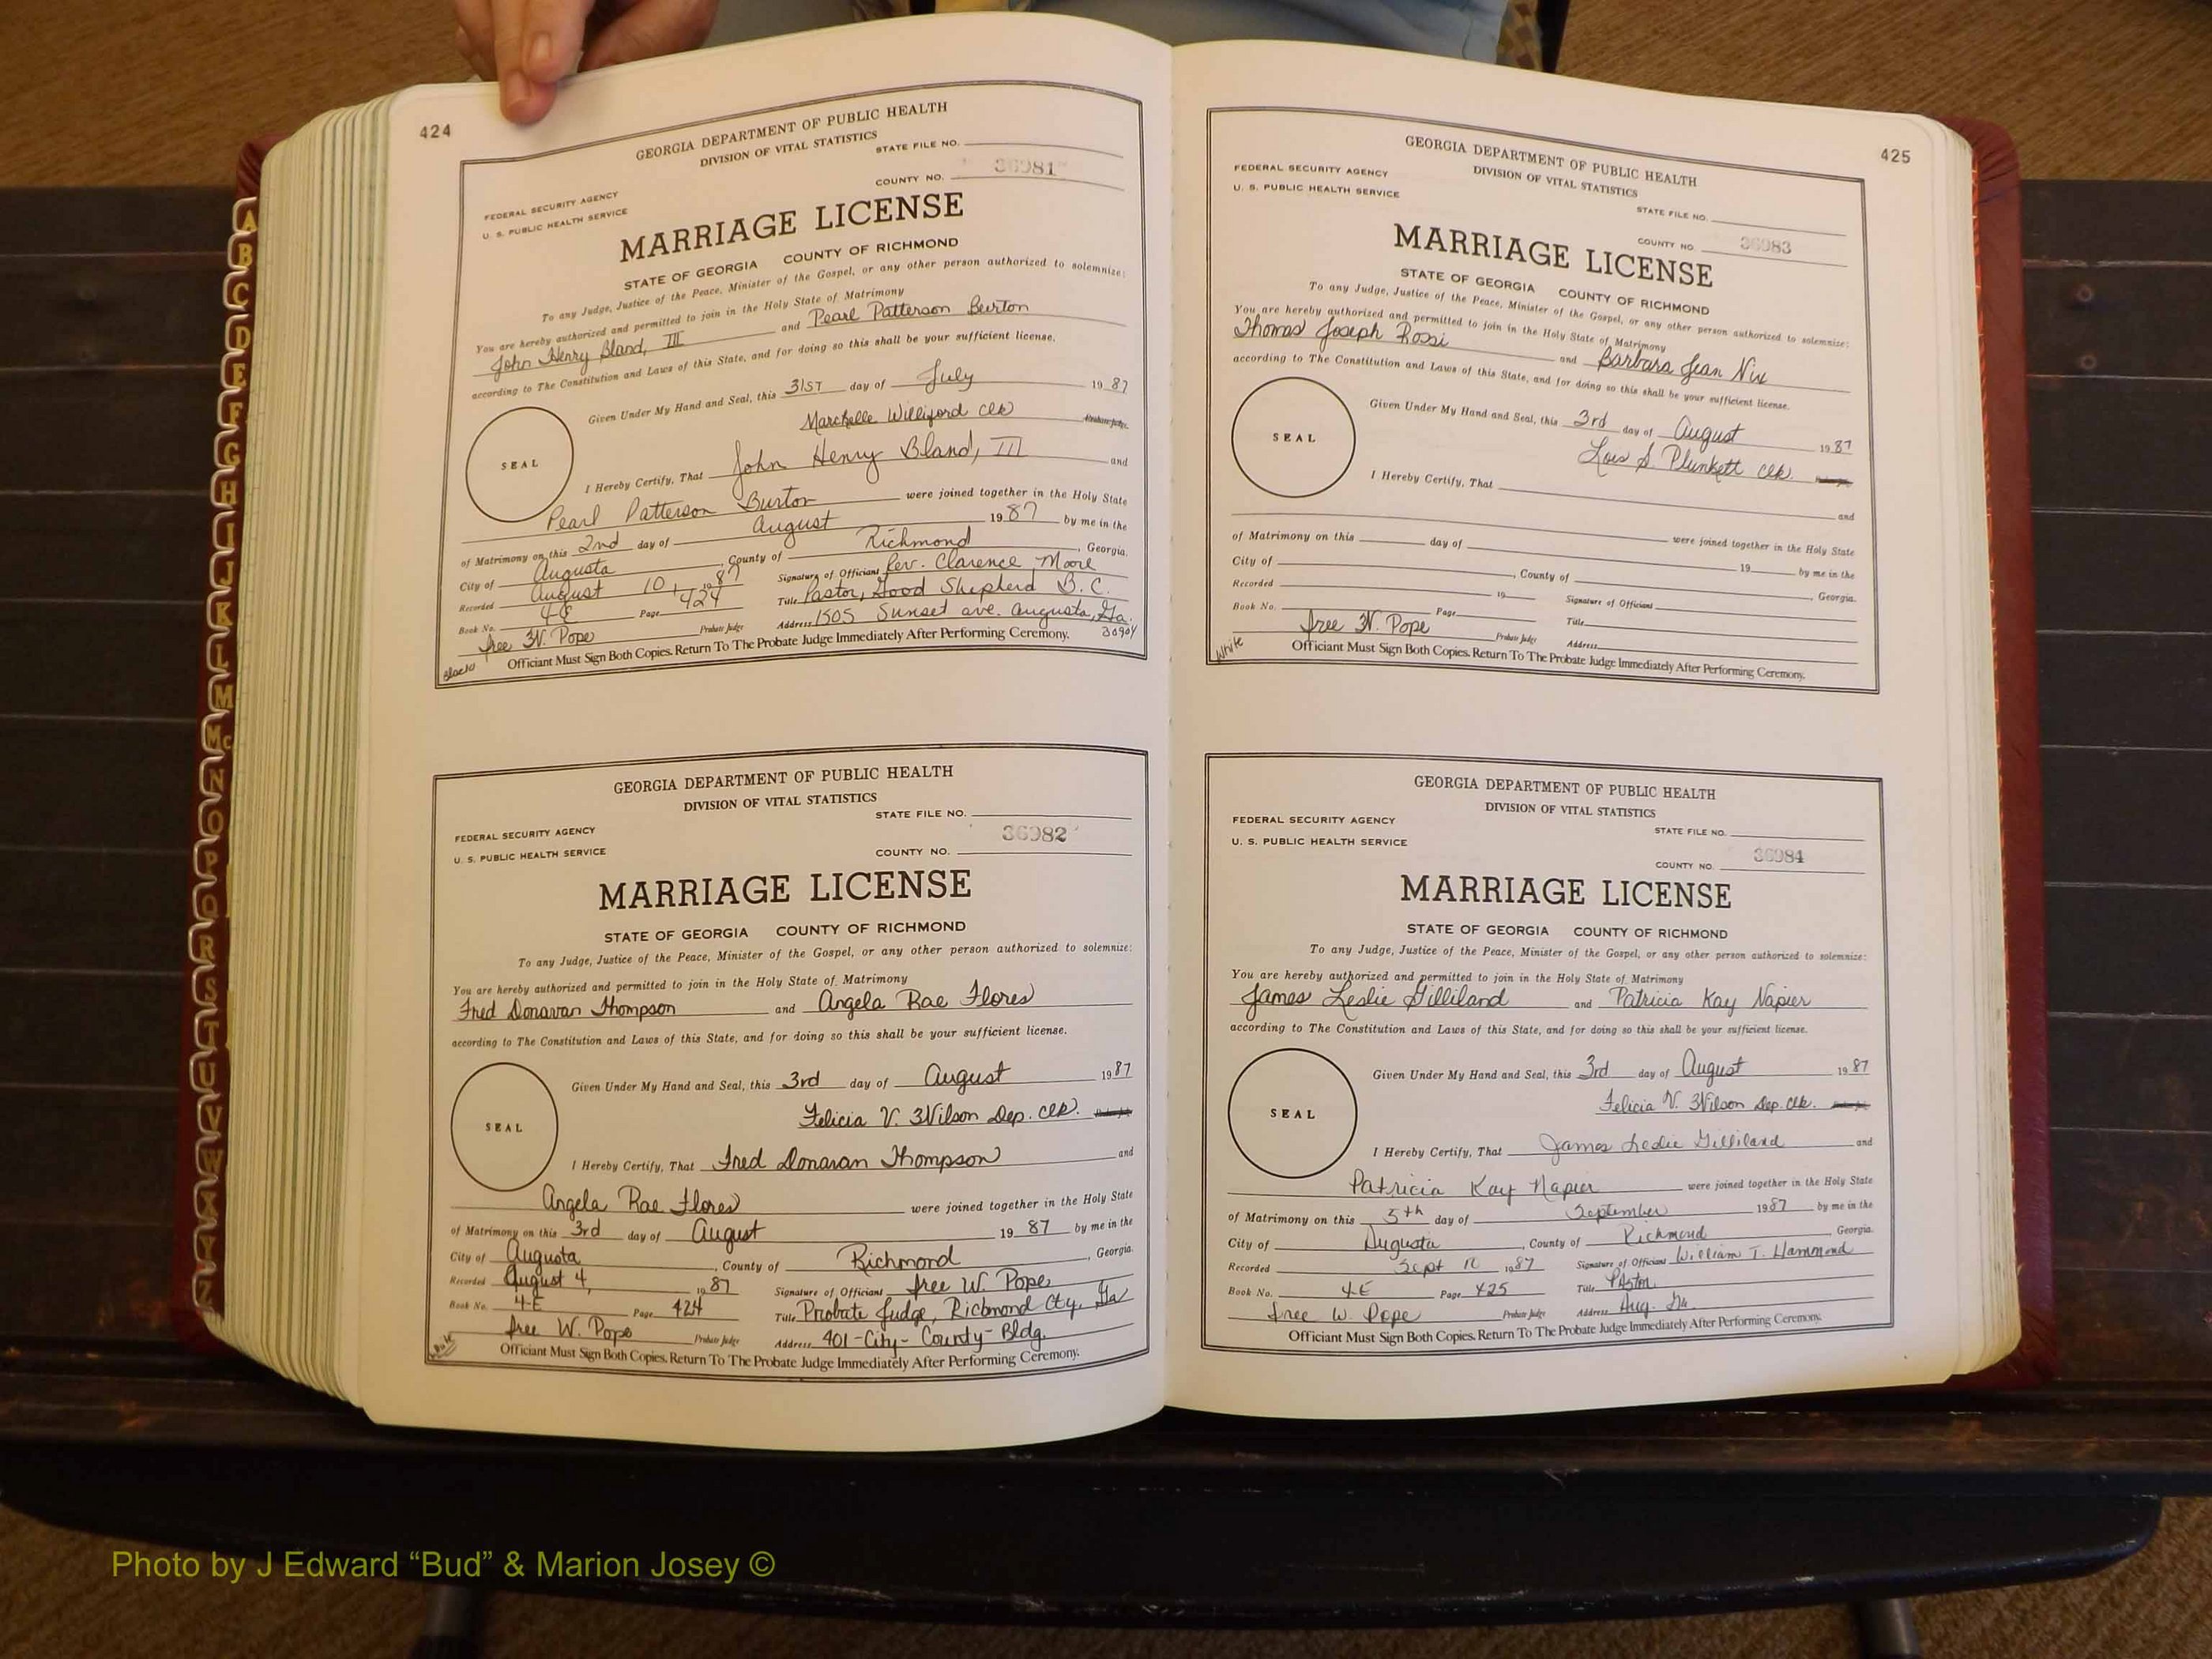 424
GEORGIA DEPARTMENT OF PUBLIC HEALTH
DIVISION OF VITAL STATISTICS
STATE FILE NO.
FEDERAL SECURITY AGENCY
U. S. PUBLIC HEALTH SERVICE
COUNTY NO. 36981
MARRIAGE LICENSE
STATE OF GEORGIA COUNTY OF RICHMOND
To any Judge, Justice of the Peace, Minister of the Gospel, or any other person authorized to solemnize:
You are hereby authorized and permitted to join in the Holy State of Matrimony
John Henry Bland, III and Pearl Patterson Burton
according to The Constitution and Laws of this State, and for doing so this shall be your sufficient license.
Given Under My Hand and Seal, this 31ST day of July 1987
Marchelle Williford clk Probate Judge
SEAL
I Hereby Certify, That John Henry Bland, III and
Pearl Patterson Burton were joined together in the Holy State
of Matrimony on this 2nd day of August 1987 by me in the
City of Augusta, County of Richmond, Georgia.
Recorded August 10, 1987 Signature of Officiant Rev. Clarence Moore
Book No. 4E Page 424 Title Pastor, Good Shepherd B.C.
Iree W. Pope Probate Judge Address 1505 Sunset ave. Augusta, Ga. 30904
Officiant Must Sign Both Copies. Return To The Probate Judge Immediately After Performing Ceremony.
GEORGIA DEPARTMENT OF PUBLIC HEALTH
DIVISION OF VITAL STATISTICS
STATE FILE NO.
FEDERAL SECURITY AGENCY
U. S. PUBLIC HEALTH SERVICE
COUNTY NO. 36982
MARRIAGE LICENSE
STATE OF GEORGIA COUNTY OF RICHMOND
To any Judge, Justice of the Peace, Minister of the Gospel, or any other person authorized to solemnize:
You are hereby authorized and permitted to join in the Holy State of Matrimony
Fred Donavan Thompson and Angela Rae Flores
according to The Constitution and Laws of this State, and for doing so this shall be your sufficient license.
Given Under My Hand and Seal, this 3rd day of August 1987
Felicia V. Wilson Dep. clk.
SEAL
I Hereby Certify, That Fred Donavan Thompson and
Angela Rae Flores were joined together in the Holy State
of Matrimony on this 3rd day of August 1987 by me in the
City of Augusta, County of Richmond, Georgia.
Recorded August 4, 1987 Signature of Officiant Iree W. Pope
Book No. 4-E Page 424 Title Probate Judge, Richmond Cty, Ga
Iree W. Pope Probate Judge Address 401-City-County-Bldg.
Officiant Must Sign Both Copies. Return To The Probate Judge Immediately After Performing Ceremony.
425
GEORGIA DEPARTMENT OF PUBLIC HEALTH
DIVISION OF VITAL STATISTICS
FEDERAL SECURITY AGENCY
U. S. PUBLIC HEALTH SERVICE
STATE FILE NO.
COUNTY NO. 36983
MARRIAGE LICENSE
STATE OF GEORGIA COUNTY OF RICHMOND
To any Judge, Justice of the Peace, Minister of the Gospel, or any other person authorized to solemnize:
You are hereby authorized and permitted to join in the Holy State of Matrimony
Thomas Joseph Rossi and Barbara Jean Nix
according to The Constitution and Laws of this State, and for doing so this shall be your sufficient license.
Given Under My Hand and Seal, this 3rd day of August 1987
Lois S. Plunkett clk.
SEAL
I Hereby Certify, That and
were joined together in the Holy State
of Matrimony on this day of 19 by me in the
City of , County of , Georgia.
Recorded 19 Signature of Officiant
Book No. Page Title
Iree W. Pope Probate Judge Address
White
Officiant Must Sign Both Copies. Return To The Probate Judge Immediately After Performing Ceremony.
GEORGIA DEPARTMENT OF PUBLIC HEALTH
DIVISION OF VITAL STATISTICS
FEDERAL SECURITY AGENCY
U. S. PUBLIC HEALTH SERVICE
STATE FILE NO.
COUNTY NO. 36984
MARRIAGE LICENSE
STATE OF GEORGIA COUNTY OF RICHMOND
To any Judge, Justice of the Peace, Minister of the Gospel, or any other person authorized to solemnize:
You are hereby authorized and permitted to join in the Holy State of Matrimony
James Leslie Gilliland and Patricia Kay Napier
according to The Constitution and Laws of this State, and for doing so this shall be your sufficient license.
Given Under My Hand and Seal, this 3rd day of August 1987
Felicia V. Wilson Dep. clk.
SEAL
I Hereby Certify, That James Leslie Gilliland and
Patricia Kay Napier were joined together in the Holy State
of Matrimony on this 5th day of September 1987 by me in the
City of Augusta, County of Richmond Georgia.
Recorded Sept 10 1987 Signature of Officiant William T. Hammond
Book No. 4E Page 425 Title Pastor
Iree W. Pope Probate Judge Address Aug. Ga.
Officiant Must Sign Both Copies. Return To The Probate Judge Immediately After Performing Ceremony.
Photo by J Edward “Bud” & Marion Josey ©